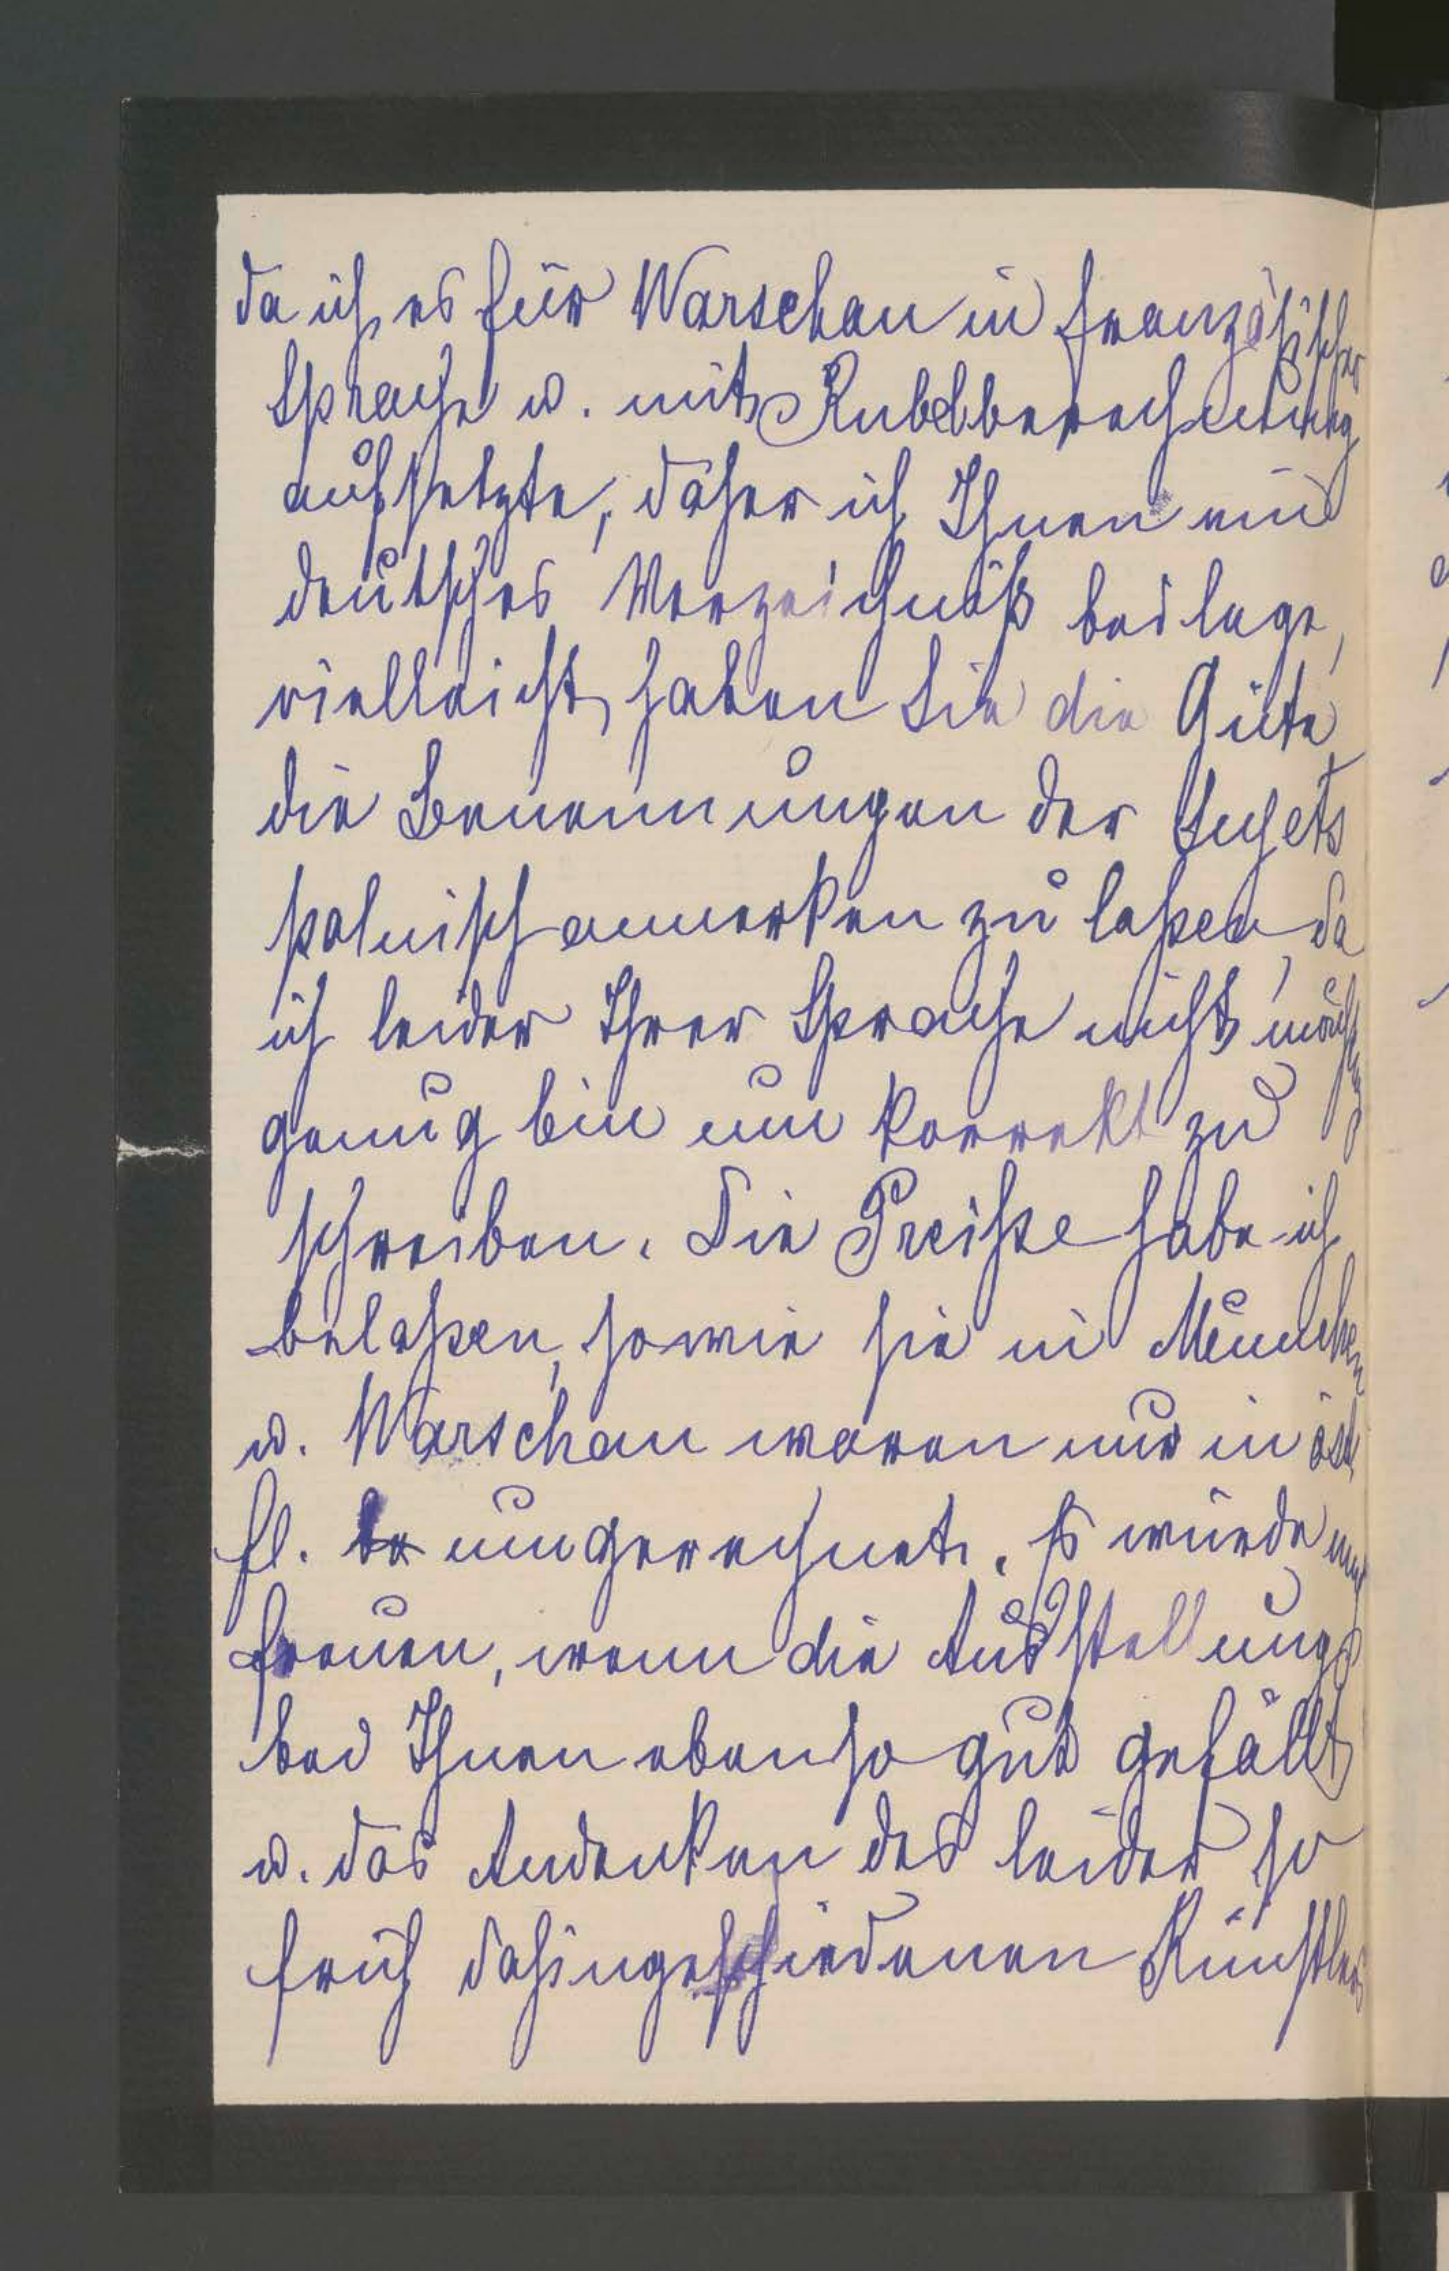 da ich es für Warschau in französischer
Sprache u. mit Rubelberechnung
aufsetzte, daher ich Ihnen ein
deutsches Verzeichniß beilege,
vielleicht haben Sie die Güte
die Benennungen der Sujets
polnisch anmerken zu laßen, da
ich leider Ihrer Sprache nicht mächtig
genug bin um korrekt zu
schreiben. Die Preiße habe ich
belaßen, sowie sie in München
u. Warschau waren nur in öst
fl. umgerechnet. Es würde mich
freuen, wenn die Ausstellung
bei Ihnen ebenso gut gefällt
u. das Andenken des leider so
früh dahingeschiedenen Künstlers